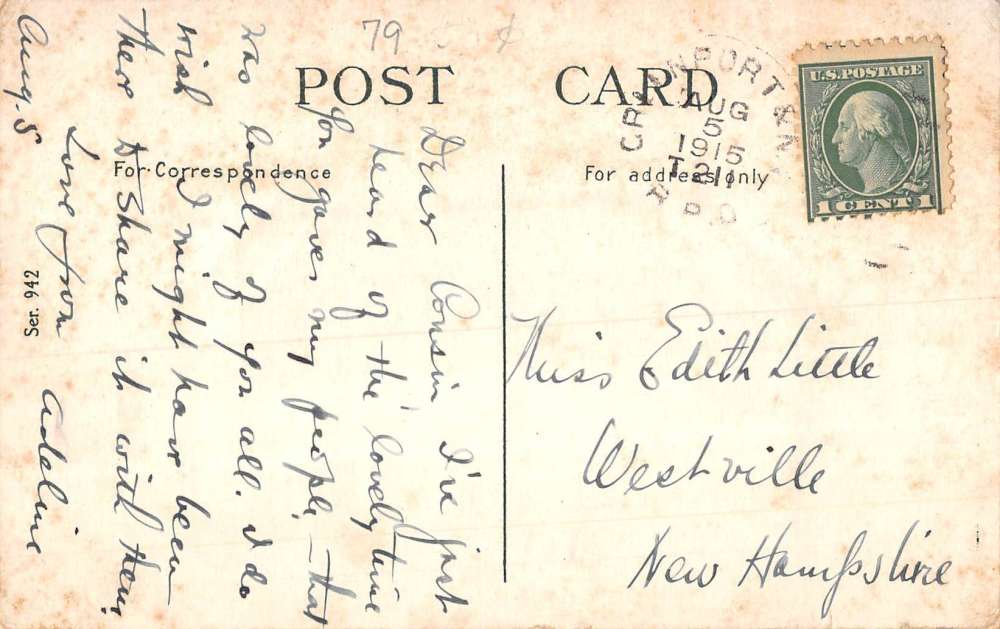 79
POST CARD
For Correspondence
For address only
U.S. POSTAGE
1 CENT 1
AUG
5
1915
R P O
Dear Cousin I've just
heard of the lovely time
You gave my people, — that
was lovely of you all. I do
wish I might have been
there to share it with them.
Love from Adeline
Aug. 5
Ser. 942
Miss Edith Little
Westville
New Hampshire